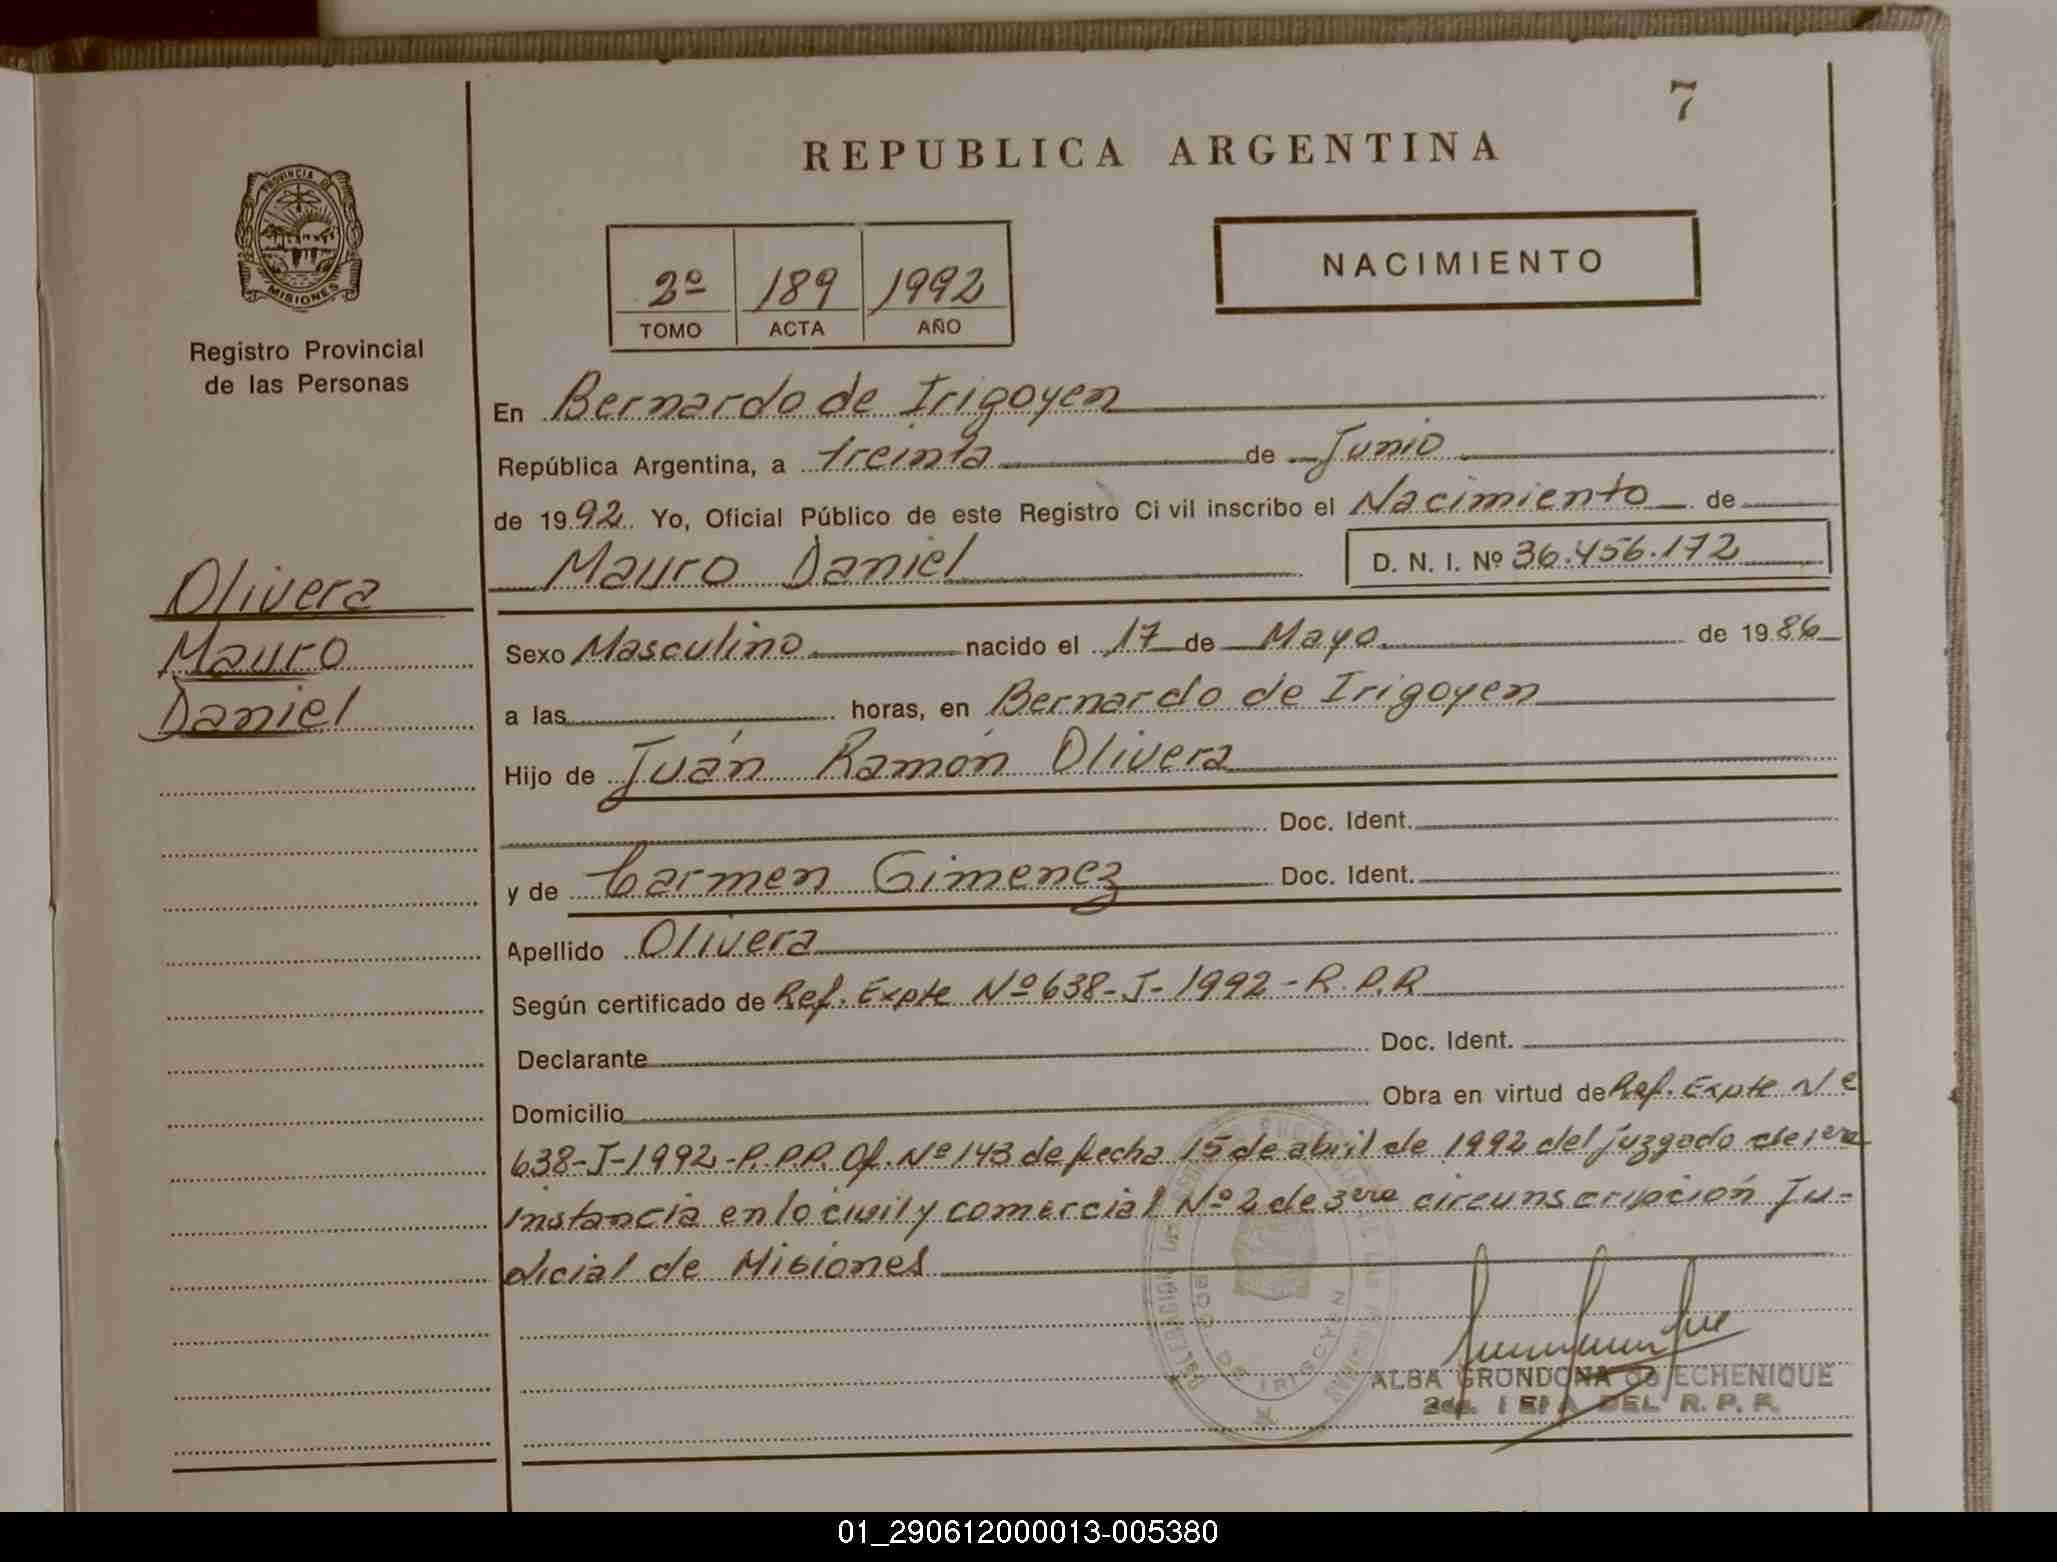 7
REPUBLICA ARGENTINA
PROVINCIA DE
MISIONES
2º 189 1992
TOMO ACTA AÑO
NACIMIENTO
Registro Provincial
de las Personas
En Bernardo de Irigoyen
República Argentina, a treinta de Junio
de 1992. Yo, Oficial Público de este Registro Ci vil inscribo el Nacimiento de
Mauro Daniel D. N. I. Nº 36.456.172
Olivera
Mauro
Daniel
Sexo Masculino nacido el 17 de Mayo de 1986
a las horas, en Bernardo de Irigoyen
Hijo de Juán Ramón Olivera
Doc. Ident.
y de Carmen Gimenez Doc. Ident.
Apellido Olivera
Según certificado de Ref. Expte Nº 638-J-1992-R.P.R
Declarante Doc. Ident.
Domicilio Obra en virtud de Ref. Expte Nº
638-J-1992-P.P.P. Of. Nº 143 de fecha 15 de abril de 1992 del juzgado de 1era
instancia en lo civil y comercial Nº 2 de 3era circunscripción Ju-
dicial de Misiones
DE IRIGOYEN
ALBA GRONDONA de ECHENIQUE
DEL R. P. P.
01_290612000013-005380